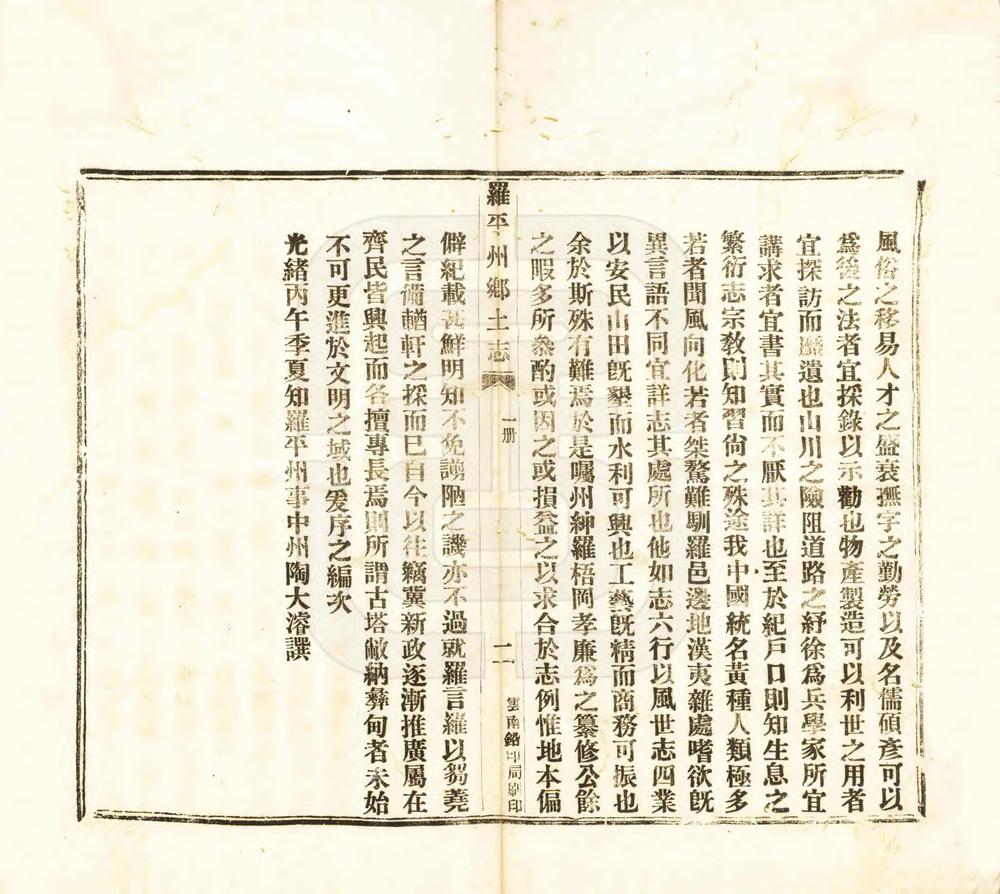 風俗之移易人才之盛衰撫字之勤勞以及名儒碩彥可以
爲後之法者宜採錄以示勸也物產製造可以利世之用者
宜探訪而靡遺也山川之險阻道路之紆徐爲兵學家所宜
講求者宜書其實而不厭其詳也至於紀戶口則知生息之
繁衍志宗敎則知習尙之殊途我中國統名黃種人類極多
若者聞風向化若者桀驁難馴羅邑邊地漢夷雜處嗜欲旣
異言語不同宜詳志其處所也他如志六行以風世志四業
以安民山田旣墾而水利可興也工藝旣精而商務可振也
余於斯殊有難焉於是囑州紳羅梧岡孝廉爲之纂修公餘
之暇多所叅酌或因之或損益之以求合於志例惟地本偏
羅平州鄉土志 一册 二 雲南鉛印局刷印
僻紀載甚鮮明知不免謭陋之譏亦不過就羅言羅以芻蕘
之言備輶軒之採而已自今以往竊冀新政逐漸推廣屬在
齊民皆興起而各擅專長焉則所謂古塔敵納彝甸者未始
不可更進於文明之域也爰序之編次
光緒丙午季夏知羅平州事中州陶大濬譔